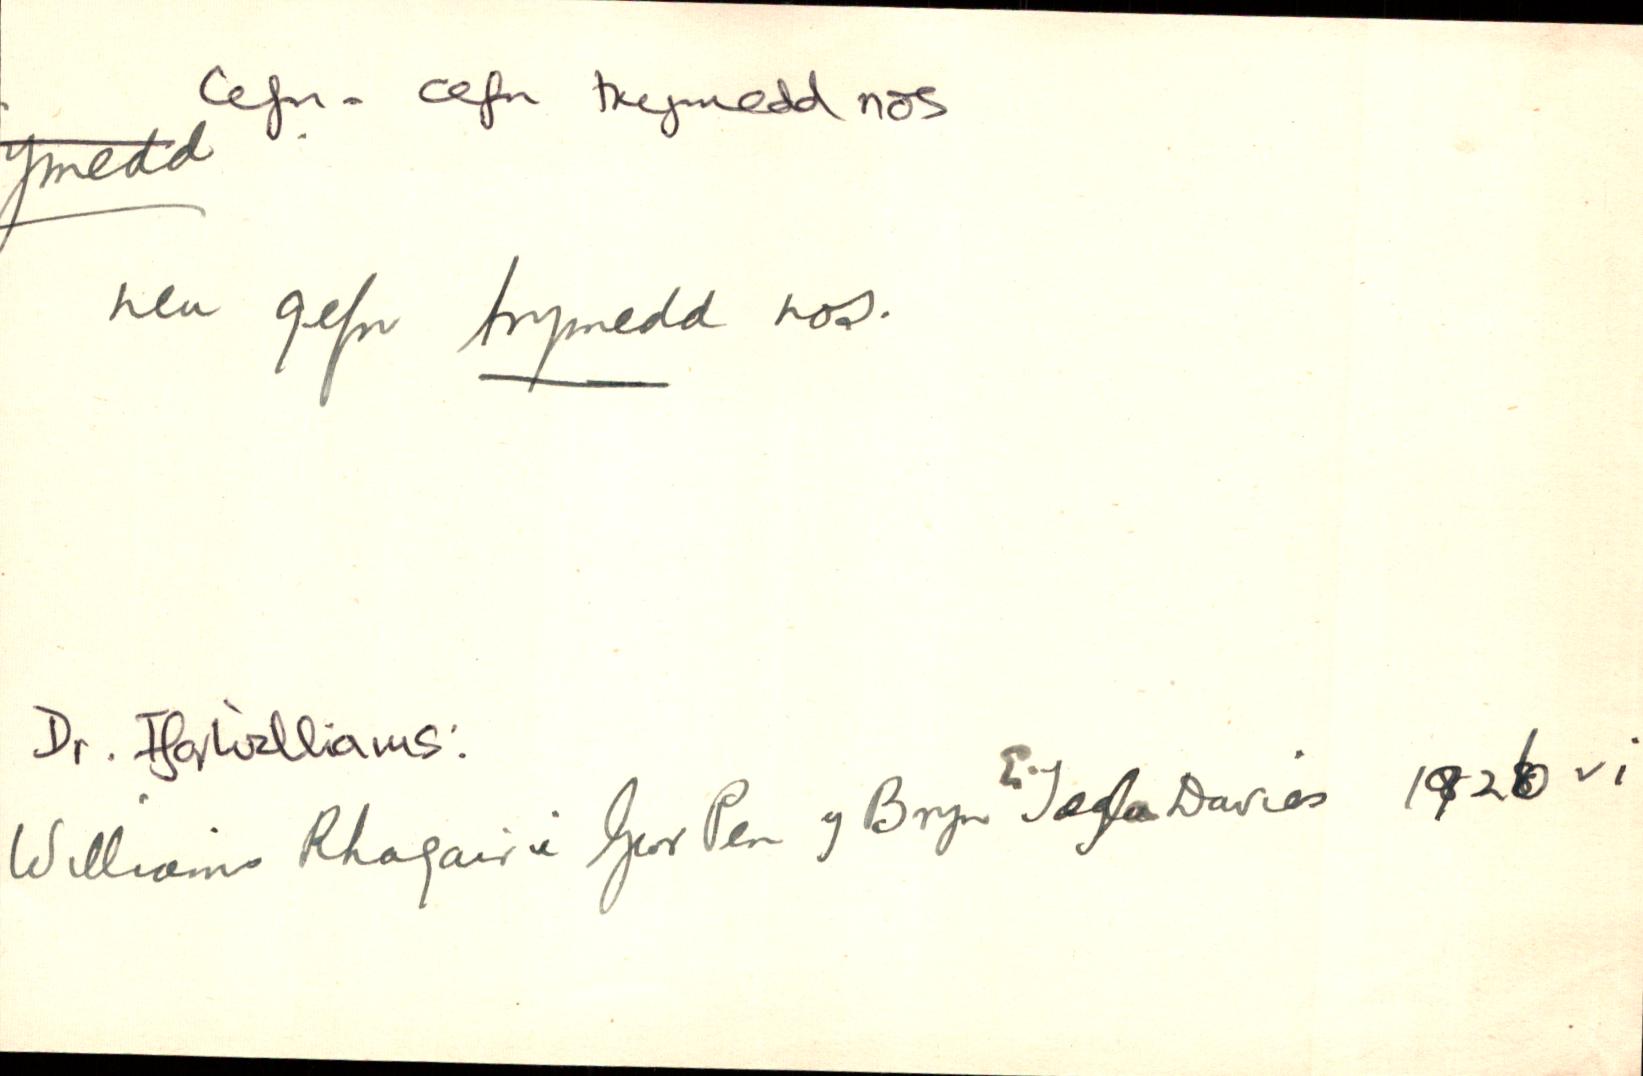 Cefn - cefn trymedd nos
ymedd
neu gefn trymedd nos.
Dr. Ifor Williams:
Williams Rhagair i Gwr Pen y Bryn E. Tegla Davies 1926 vi